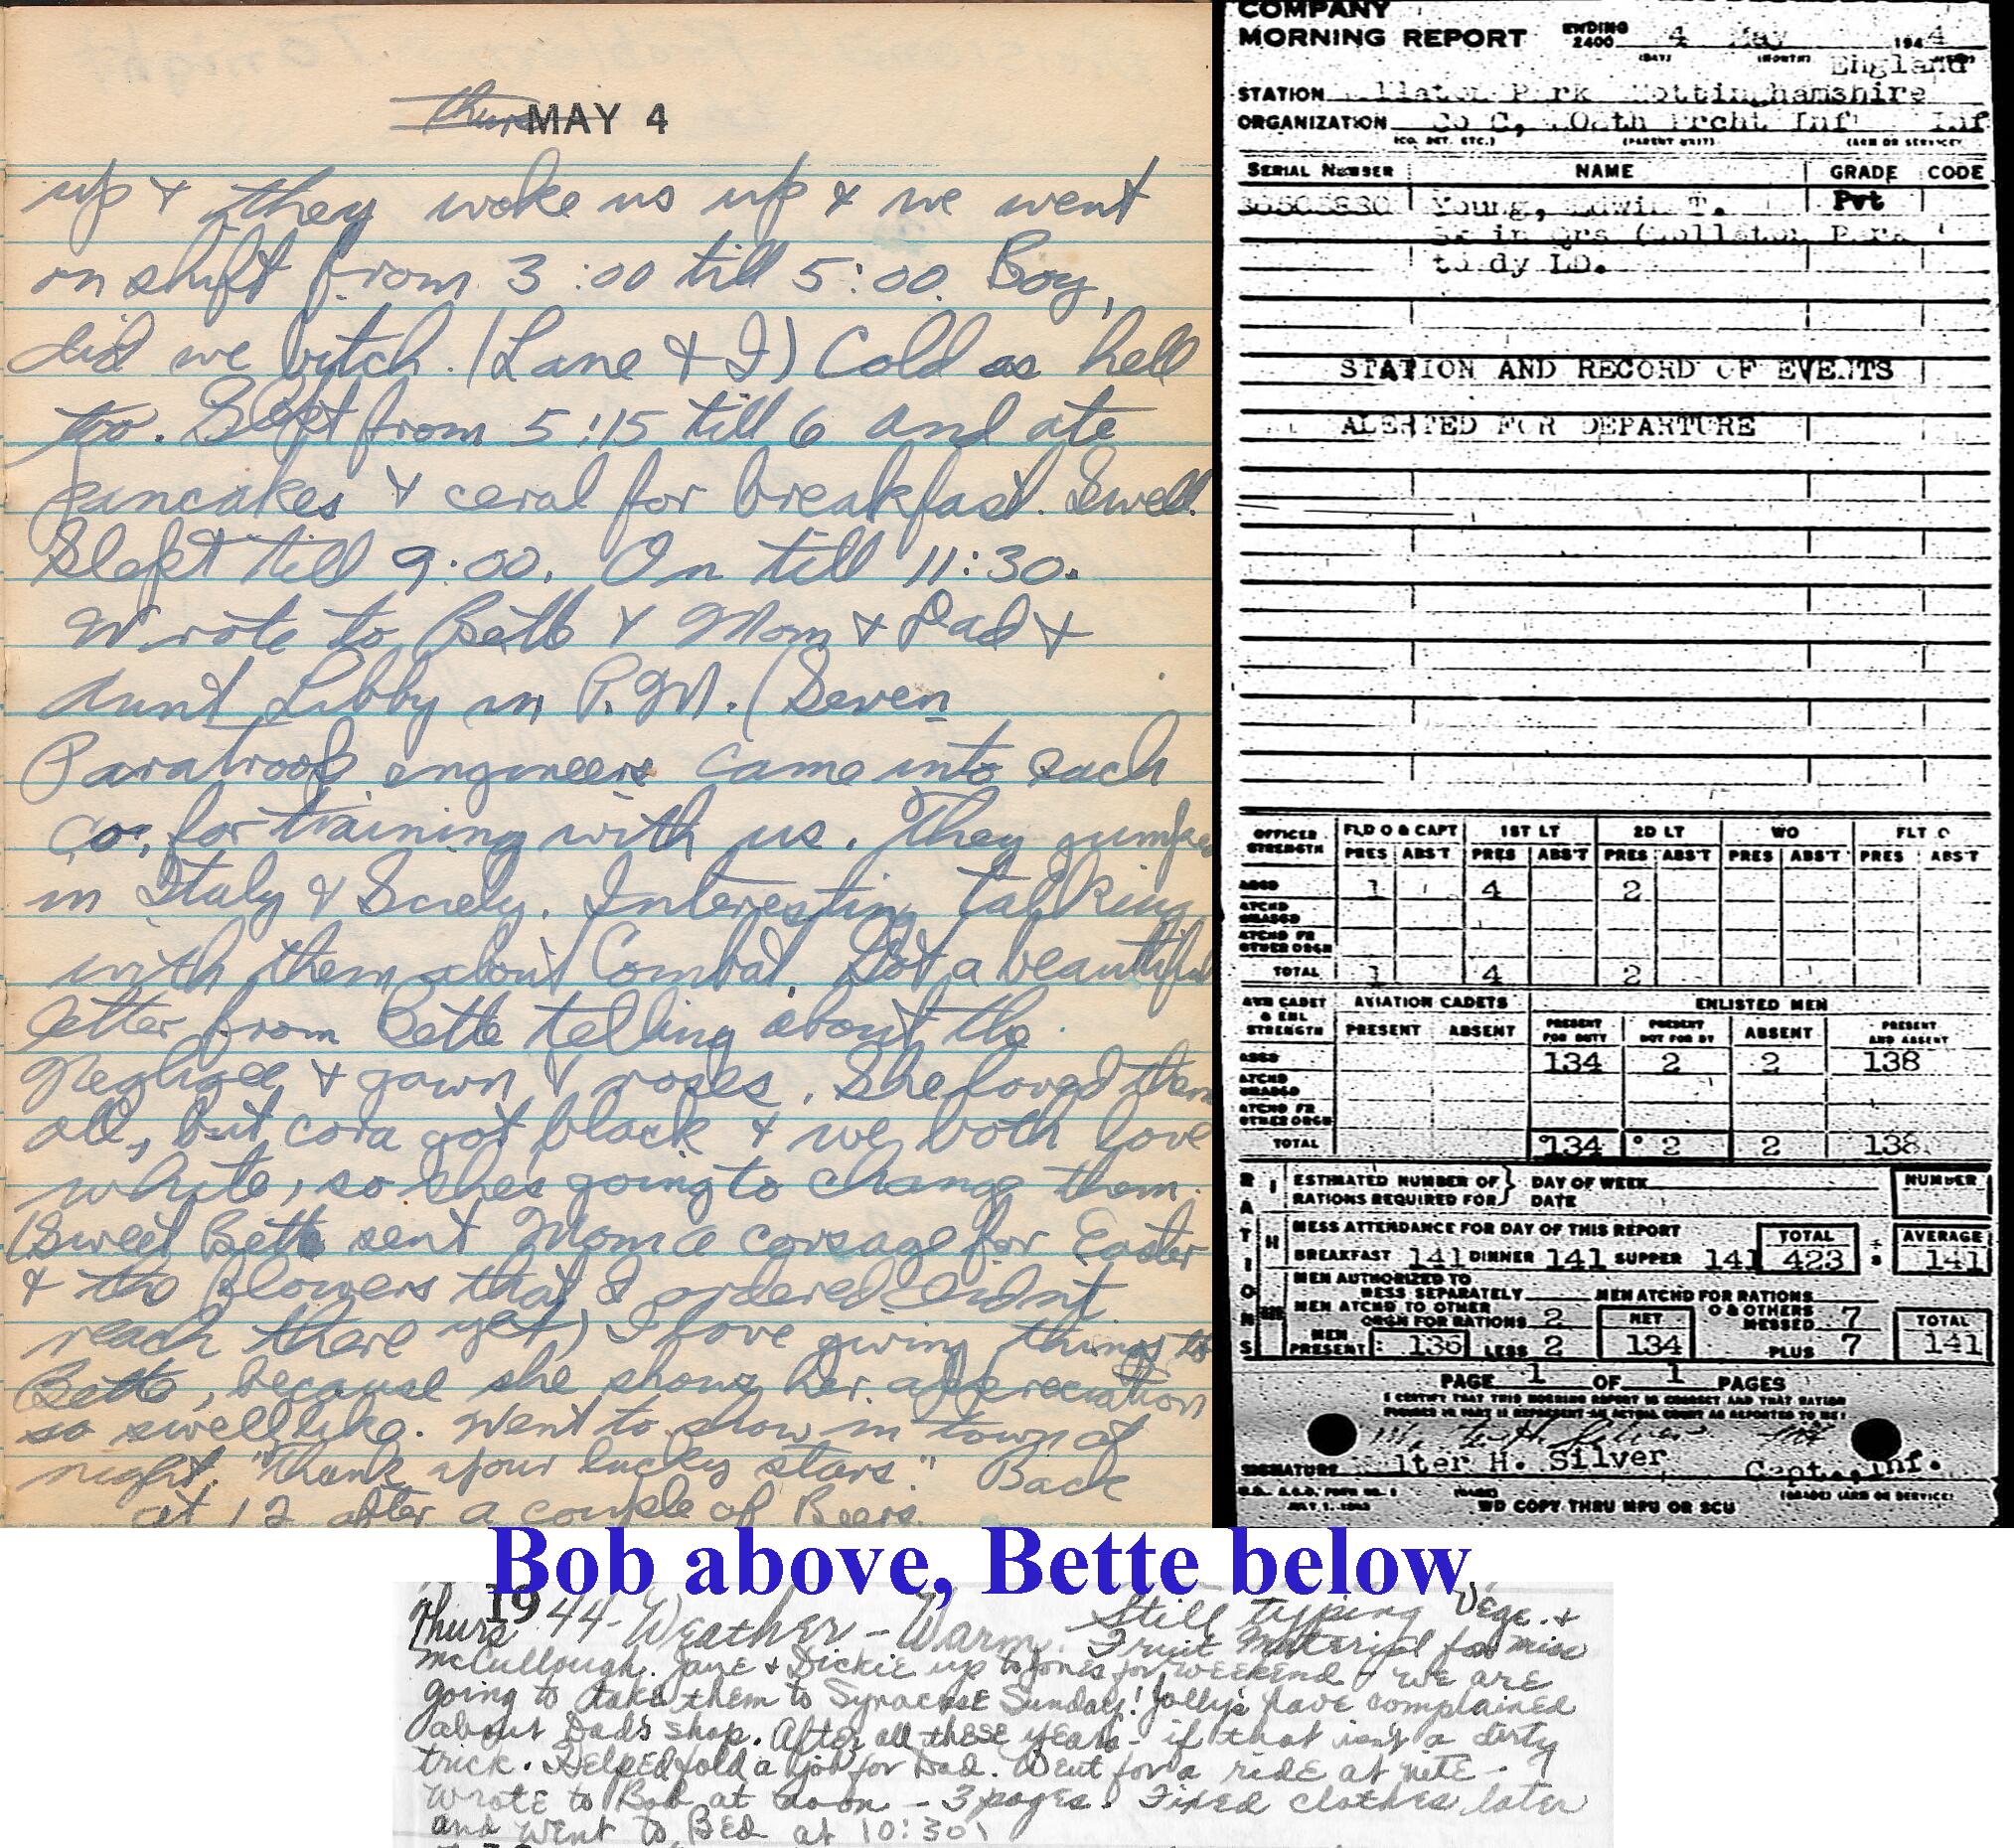 Thurs MAY 4
up & they woke us up & we went
on shift from 3:00 till 5:00. Boy,
did we bitch. (Lane & I) Cold as hell
too. Slept from 5:15 till 6 and ate
pancakes & ceral for breakfast. Swell.
Slept till 9:00. On till 11:30.
Wrote to Bette & Mom & Dad &
Aunt Libby in P.M. (Seven
Paratroop engineers came into each
Co. for training with us. They jumped
in Italy & Sicily. Interesting talking
with them about Combat. Got a beautiful
letter from Bette telling about the
Negligee & gown & roses. She loved them
all, but Cora got black & we both love
white, so she's going to change them.
(Sweet Bette sent Mom a corsage for Easter
& the flowers that I ordered didn't
reach there yet) I love giving things to
Bette, because she shows her appreciation
so swell like. Went to show in town at
night. "Thank your lucky stars." Back
at 12 after a couple of Beers.
COMPANY
MORNING REPORT ENDING 2400 4 May 1944
(DAY) (MONTH)
England
STATION Park Nottinghamshire
ORGANIZATION Co C, Prcht Inf Inf
(CO. DET. ETC.) (PARENT UNIT) (ARM OR SERVICE)
SERIAL NUMBER NAME GRADE CODE
Young, Edwin T. Pvt
Sk in qrs (Wollaton Park
to dy LD.
STATION AND RECORD OF EVENTS
ALERTED FOR DEPARTURE
OFFICER STRENGTH FLD O & CAPT 1ST LT 2D LT WO FLT O
PRES ABS'T PRES ABS'T PRES ABS'T PRES ABS'T PRES ABS'T
ASGD 1 4 2
ATCHD UNASGD
ATCHD FR OTHER ORGN
TOTAL 1 4 2
AVN CADET & ENL STRENGTH AVIATION CADETS ENLISTED MEN
PRESENT ABSENT PRESENT FOR DUTY PRESENT NOT FOR DY ABSENT PRESENT AND ABSENT
ASGD 134 2 2 138
ATCHD UNASGD
ATCHD FR OTHER ORGN
TOTAL 134 2 2 138
RATIONS
ESTIMATED NUMBER OF RATIONS REQUIRED FOR DAY OF WEEK DATE NUMBER
MESS ATTENDANCE FOR DAY OF THIS REPORT TOTAL AVERAGE
BREAKFAST 141 DINNER 141 SUPPER 141 423 ÷ 3 141
MEN AUTHORIZED TO MESS SEPARATELY MEN ATCHD FOR RATIONS
MEN ATCHD TO OTHER ORGN FOR RATIONS 2 NET O & OTHERS MESSED 7 TOTAL
MEN PRESENT: 136 LESS 2 134 PLUS 7 141
PAGE 1 OF 1 PAGES
I CERTIFY THAT THIS MORNING REPORT IS CORRECT AND THAT RATION
FIGURES IN PART II REPRESENT AN ACTUAL COUNT AS REPORTED TO ME:
SIGNATURE lter H. Silver Capt., Inf.
W.D., A.G.O. FORM NO. 1 (NAME) (GRADE) (ARM OR SERVICE)
JULY 1, 1943 WD COPY THRU MRU OR SCU
Bob above, Bette below
Thurs 1944 - Weather - Warm. Still typing Vege. &
Fruit Material for Miss
McCullough. Jane & Dickie up to Jones for weekend & we are
going to take them to Syracuse Sunday! Jolly's have complained
about Dad's shop. After all these years - if that isn't a dirty
trick. Helped fold a job for Dad. Went for a ride at nite -
Wrote to Bob at noon - 3 pages. Fixed clothes later
and went to Bed at 10:30.